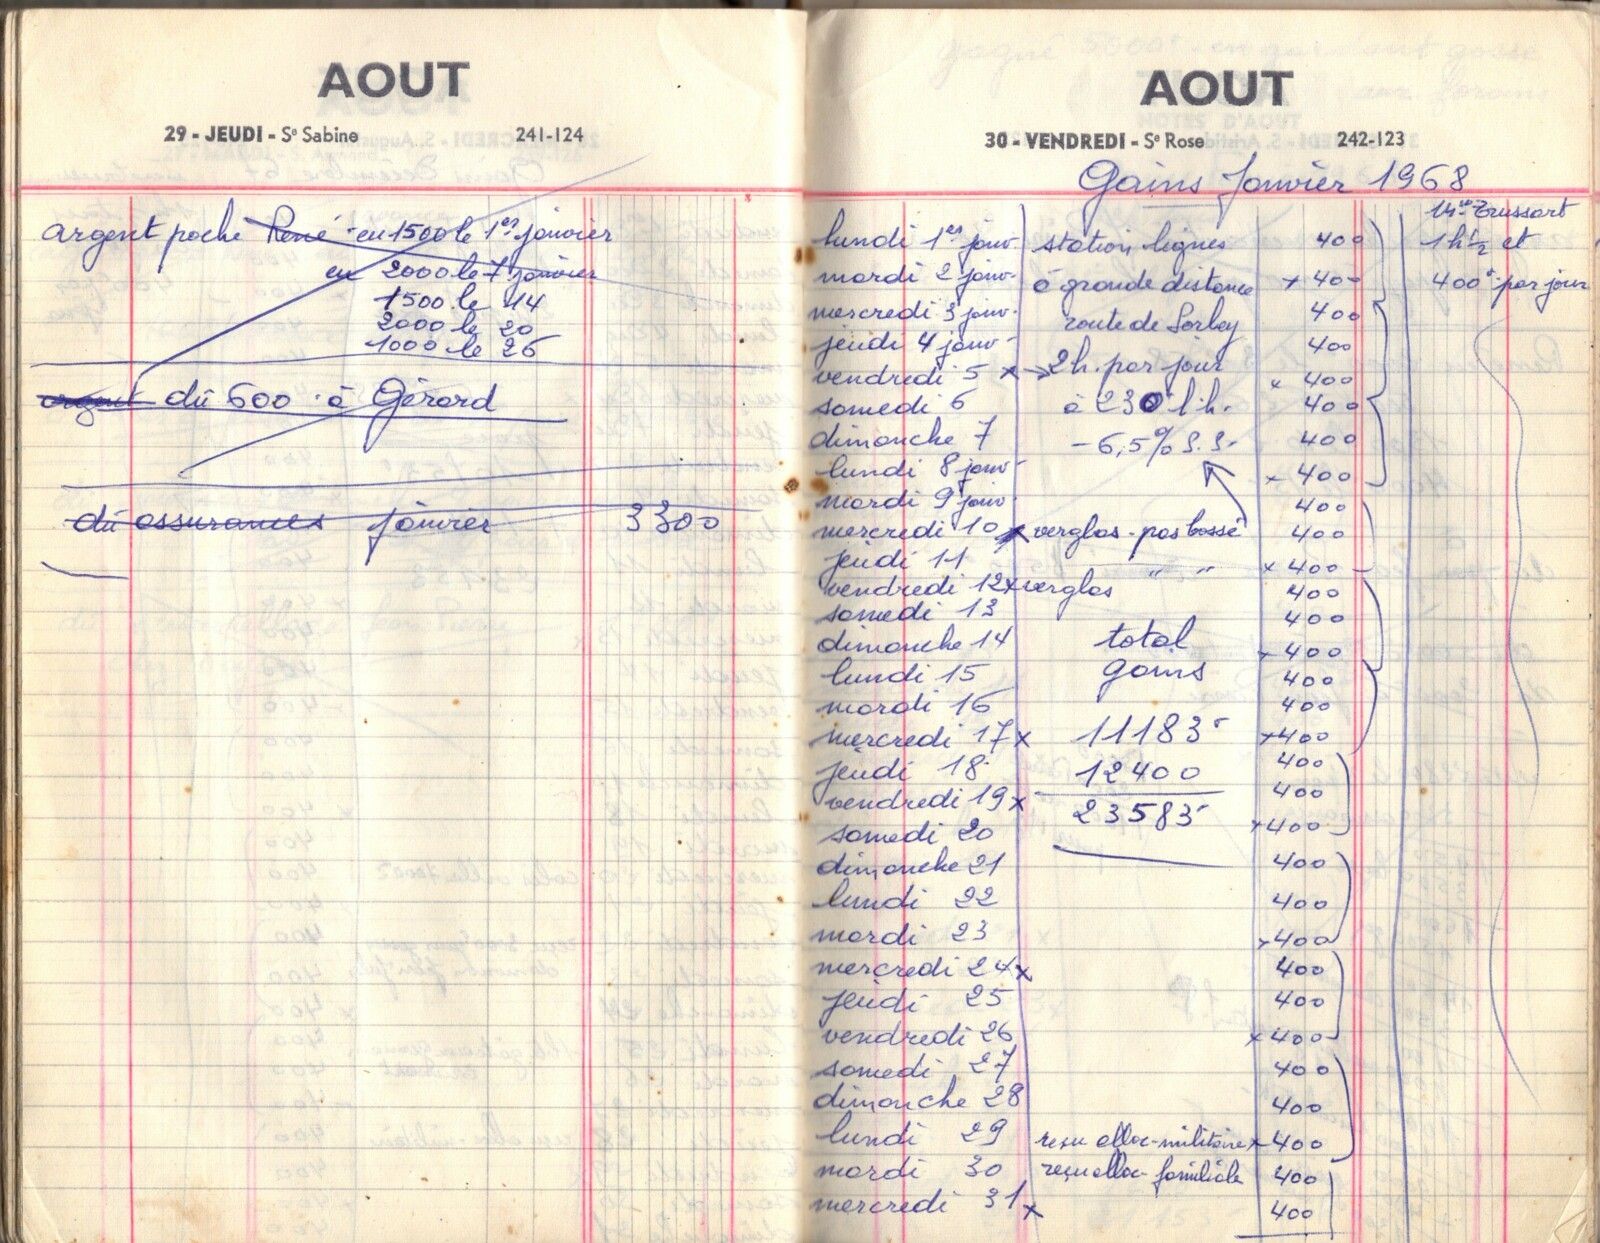 AOUT
29 - JEUDI - Sᵉ Sabine 241-124
argent poche René eu 1500 le 1er janvier
eu 2000 le 7 janvier
1500 le 14
2000 le 20
1000 le 26
argent dû 600 à Gérard
dû assurances janvier 3300
AOUT
30 - VENDREDI - Sᵉ Rose 242-123
Gains Janvier 1968
lundi 1er janv. station lignes 400 Trussart
1 h ½ et
mardi 2 janv. à grande distance x 400 400 par jour
mercredi 3 janv. route de Sorbey 400
jeudi 4 janv. 400
vendredi 5 x → 2 h. par jour x 400
samedi 6 à 230 l'h. 400
dimanche 7 - 6,5% S.S. 400
lundi 8 janv x 400
mardi 9 janv 400
mercredi 10 x verglas - pas bossé 400
jeudi 11 x 400
vendredi 12 x verglas " " 400
samedi 13 400
dimanche 14 total x 400
lundi 15 gains 400
mardi 16 400
mercredi 17 x 11183 x 400
jeudi 18 12400 400
vendredi 19 x 23583 400
samedi 20 x 400
dimanche 21 400
lundi 22 400
mardi 23 x 400
mercredi 24 x 400
jeudi 25 400
vendredi 26 x 400
samedi 27 400
dimanche 28 400
lundi 29 reçu alloc-militaire x 400
mardi 30 reçu alloc-familiale 400
mercredi 31 x 400